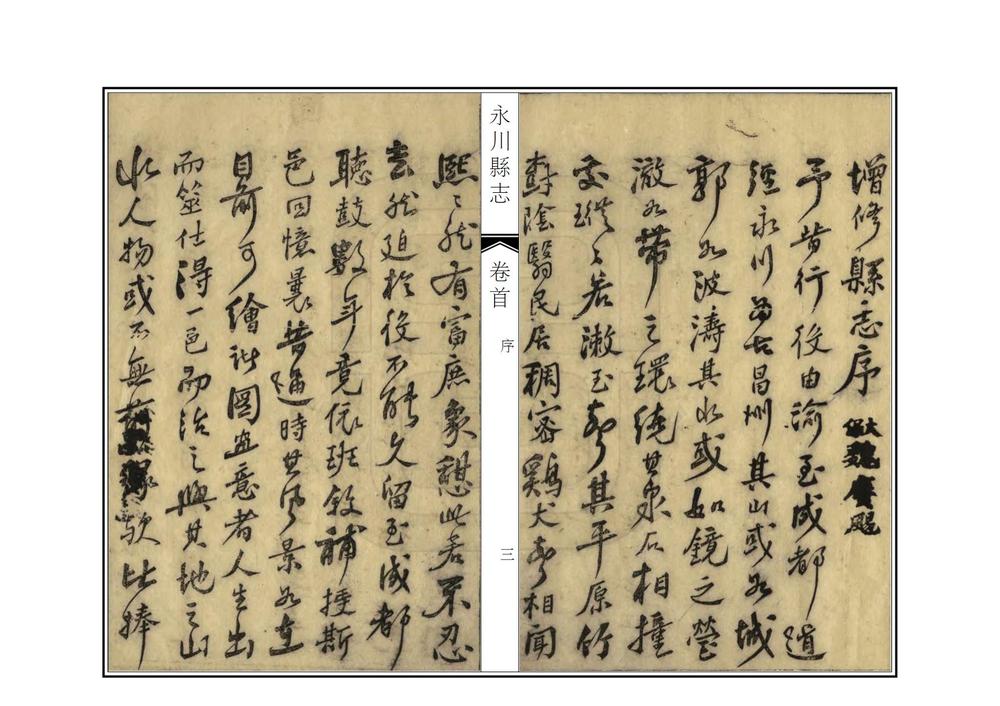 增修縣志序
予昔行役由渝至成都道
經永川為古昌州其山或如城
郭如波濤其水或如鏡之瑩
澈如帶之環繞其泉石相撞
交瑽瑽若漱玉聲其平原竹
樹陰翳民居稠密鷄犬聲相聞
永川縣志
卷首
序
三
熙熙然有富庶象憩此若不忍
去然迫於役不能久留至成都
聽鼓數年竟依班敘補授斯
邑回憶曩昔過時其風景如在
目前可繪诸圖畫意者人生出
而筮仕得一邑而治之與其地之山
水人物或不無緣歟比捧